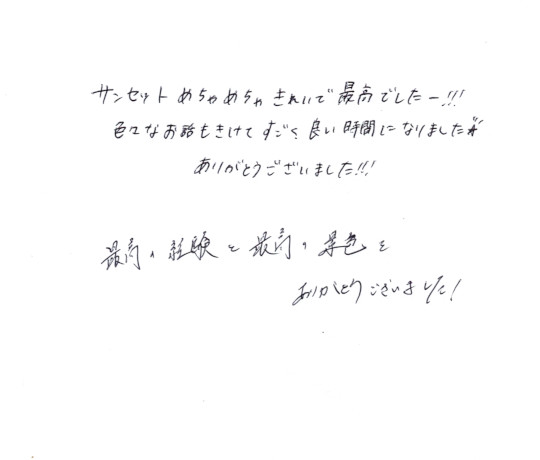 サンセットめちゃめちゃきれいで最高でしたー!!!
色々なお話もきけてすごく良い時間になりました
ありがとうございました!!!
最高の経験と最高の景色を
ありがとうございました!